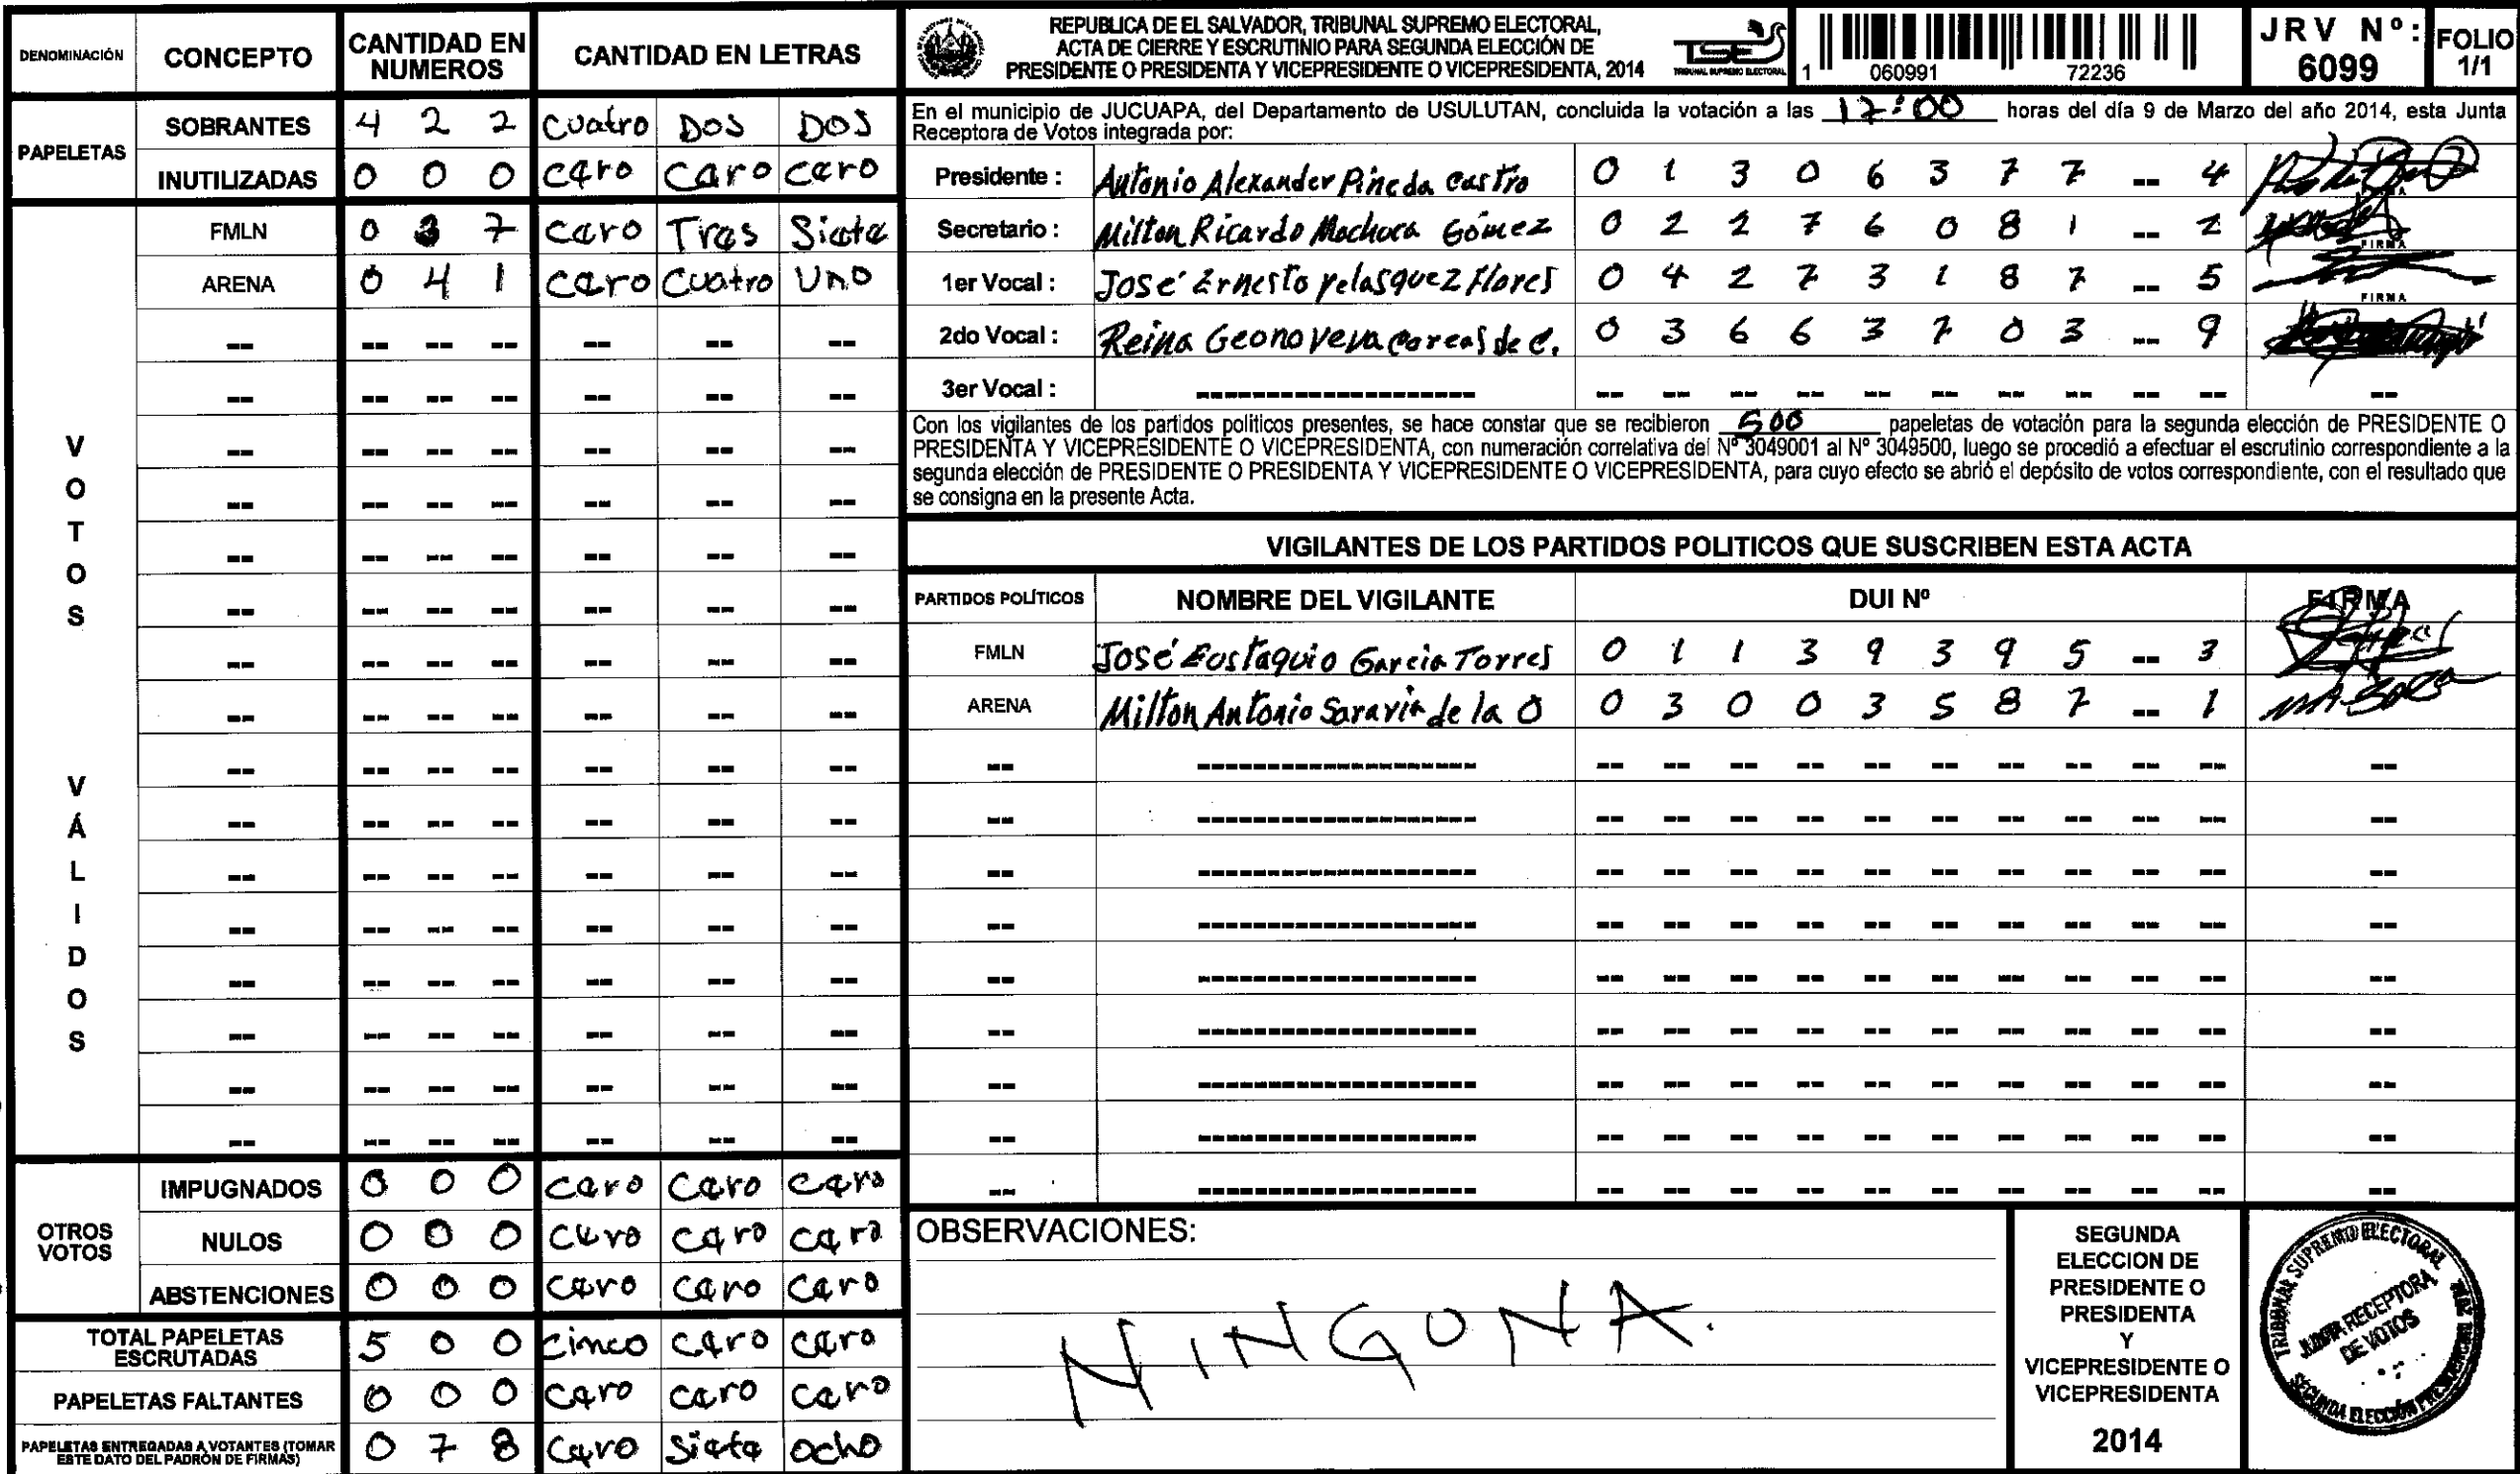 DENOMINACIÓN CONCEPTO CANTIDAD EN NUMEROS CANTIDAD EN LETRAS
PAPELETAS
SOBRANTES 4 2 2 cuatro DOS DOS
INUTILIZADAS 0 0 0 cero cero cero
VOTOS VÁLIDOS
FMLN 0 3 7 cero Tres Siete
ARENA 0 41 cero cuatro UNO
OTROS VOTOS
IMPUGNADOS 0 0 0 cero cero cero
NULOS 0 0 0 cero cero cero
ABSTENCIONES 0 0 0 cero cero cero
TOTAL PAPELETAS ESCRUTADAS 5 0 0 cinco cero cero
PAPELETAS FALTANTES 0 0 0 cero cero cero
PAPELETAS ENTREGADAS A VOTANTES (TOMAR ESTE DATO DEL PADRÓN DE FIRMAS) 0 7 8 cero siete ocho
REPUBLICA DE EL SALVADOR, TRIBUNAL SUPREMO ELECTORAL,
ACTA DE CIERRE Y ESCRUTINIO PARA SEGUNDA ELECCIÓN DE
PRESIDENTE O PRESIDENTA Y VICEPRESIDENTE O VICEPRESIDENTA, 2014
TSE
TRIBUNAL SUPREMO ELECTORAL
1 060991 72236
JRV Nº: 6099
FOLIO 1/1
En el municipio de JUCUAPA, del Departamento de USULUTAN, concluida la votación a las 17:00 horas del día 9 de Marzo del año 2014, esta Junta
Receptora de Votos integrada por:
Presidente : Antonio Alexander Pineda Castro 0 1 3 0 6 3 7 7 -- 4
Secretario : Milton Ricardo Machuca Gómez 0 2 2 7 6 0 8 1 -- 2
FIRMA
1er Vocal : José Ernesto Velasquez Flores 0 4 2 7 3 1 8 7 -- 5
FIRMA
2do Vocal : Reina Geonoveva de C. 0 3 6 6 3 7 0 3 -- 9
3er Vocal :
Con los vigilantes de los partidos politicos presentes, se hace constar que se recibieron 500 papeletas de votación para la segunda elección de PRESIDENTE O
PRESIDENTA Y VICEPRESIDENTE O VICEPRESIDENTA, con numeración correlativa del Nº 3049001 al Nº 3049500, luego se procedió a efectuar el escrutinio correspondiente a la
segunda elección de PRESIDENTE O PRESIDENTA Y VICEPRESIDENTE O VICEPRESIDENTA, para cuyo efecto se abrió el depósito de votos correspondiente, con el resultado que
se consigna en la presente Acta.
VIGILANTES DE LOS PARTIDOS POLITICOS QUE SUSCRIBEN ESTA ACTA
PARTIDOS POLÍTICOS NOMBRE DEL VIGILANTE DUI Nº FIRMA
FMLN José Eustaquio Garcia Torres 0 1 1 3 9 3 9 5 -- 3
ARENA Milton Antonio Saravia de la O 0 3 0 0 3 5 8 7 -- 1
OBSERVACIONES:
NINGUNA.
SEGUNDA
ELECCION DE
PRESIDENTE O
PRESIDENTA
Y
VICEPRESIDENTE O
VICEPRESIDENTA
2014
TRIBUNAL SUPREMO ELECTORAL
JUNTA RECEPTORA
DE VOTOS
SEGUNDA ELECCIÓN PRESIDENCIAL 2014